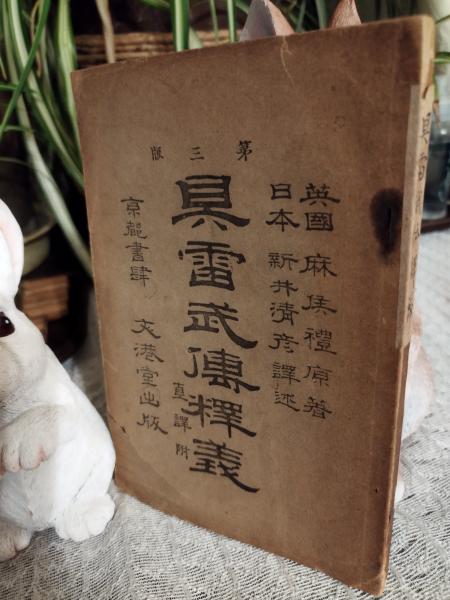 第三版
英國 麻侯禮原著
日本 新井清彦譯述
具雷武傳釋義
直譯附
京都書肆 文港堂出版
具雷